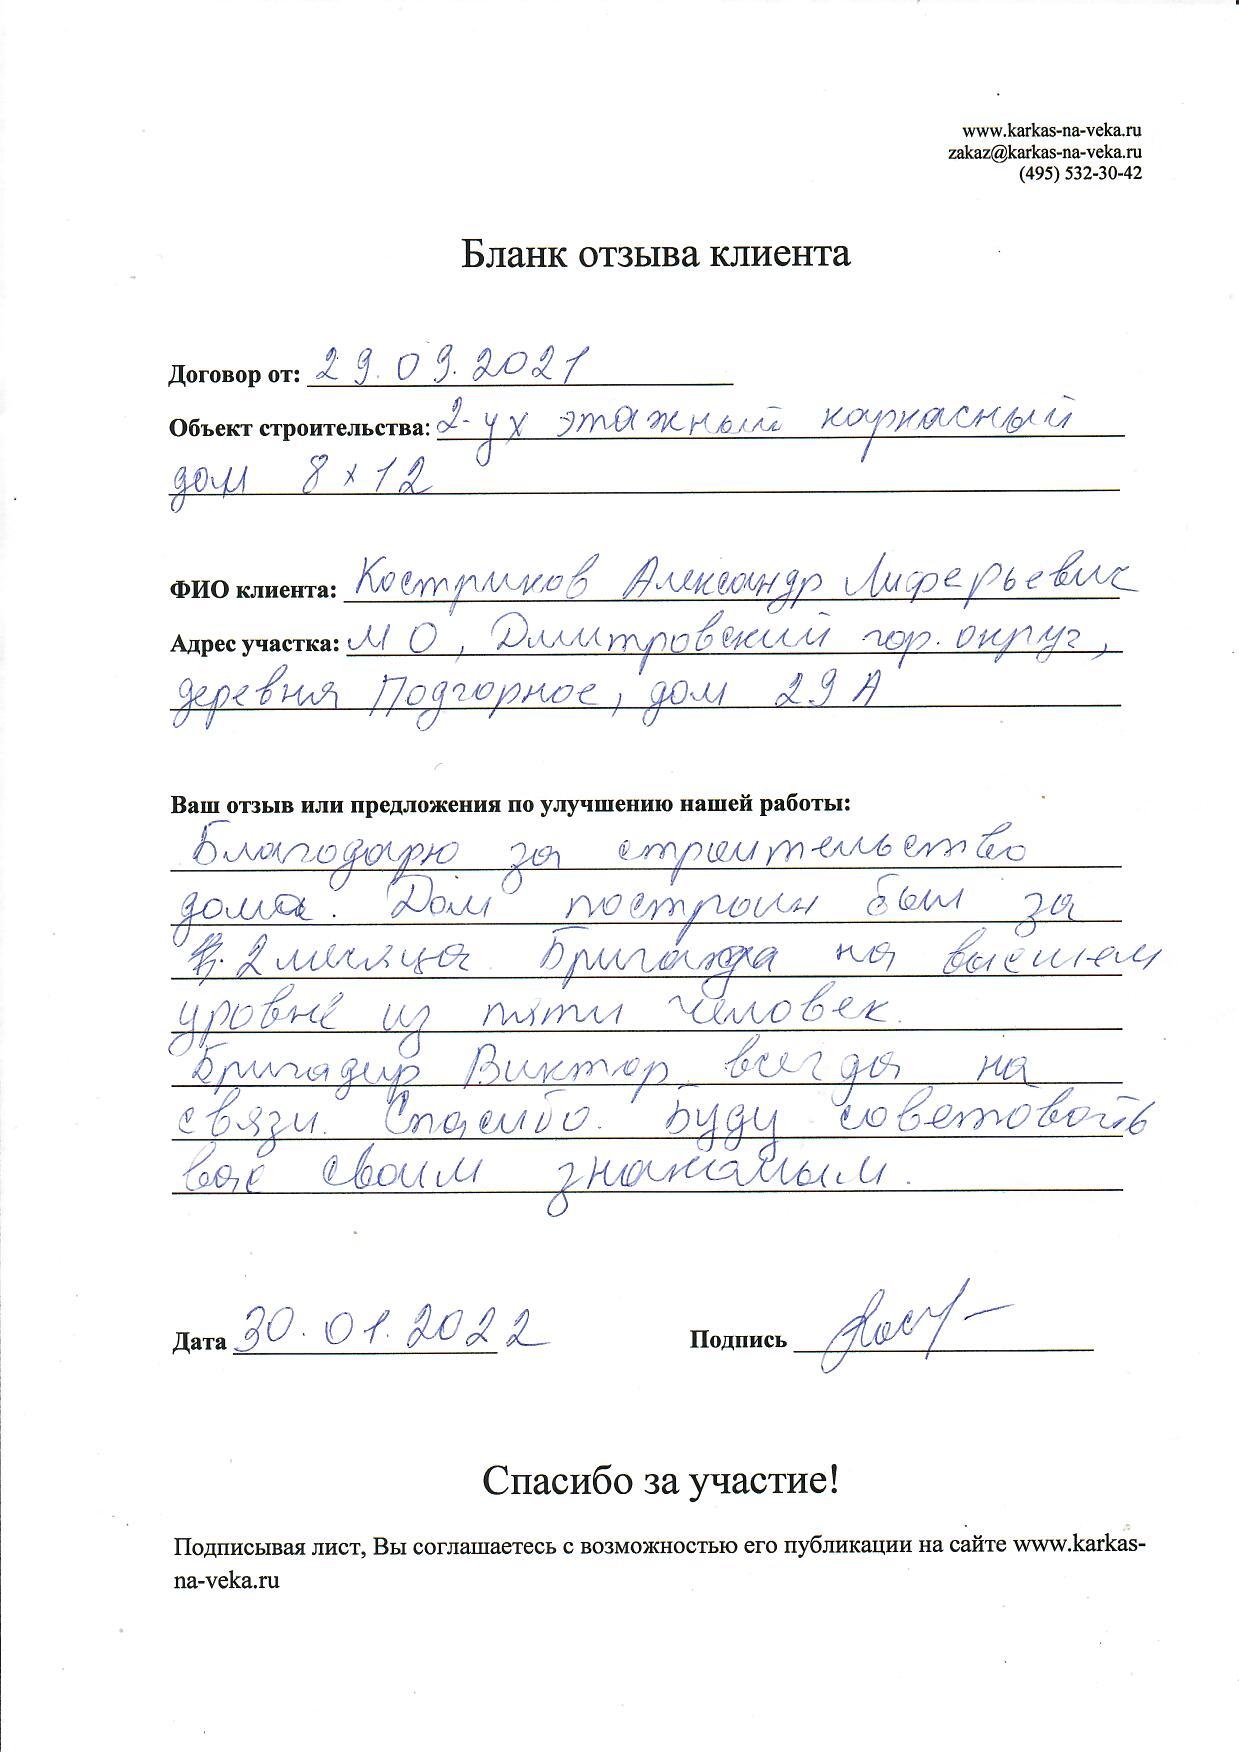 www.karkas-na-veka.ru
zakaz@karkas-na-veka.ru
(495) 532-30-42
Бланк отзыва клиента
Договор от: 29.09.2021
Объект строительства: 2-ух этажный каркасный
дом 8х12
ФИО клиента: Костриков Александр Лиферьевич
Адрес участка: МО, Дмитровский гор. округ,
деревня Подгорное, дом 29А
Ваш отзыв или предложения по улучшению нашей работы:
Благодарю за строительство
дома. Дом построин был за
2 месяца. Бригада на высшем
уровне из пяти человек.
Бригадир Виктор всегда на
связи. Спасибо. Буду советовать
вас своим знакомым.
Дата 30.01.2022 Подпись
Спасибо за участие!
Подписывая лист, Вы соглашаетесь с возможностью его публикации на сайте www.karkas-
na-veka.ru